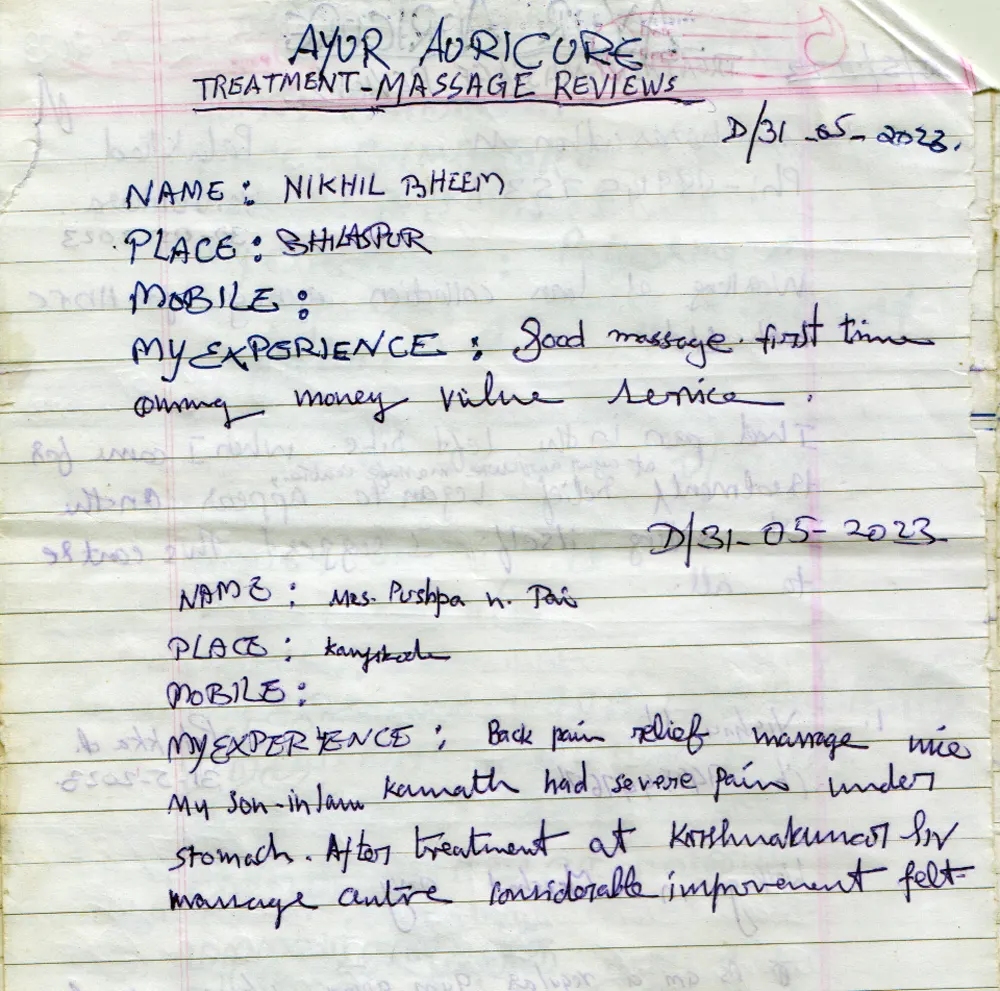 AYUR AURICURE
TREATMENT-MASSAGE REVIEWS
D/31-05-2023.
NAME: NIKHIL BHEEM
PLACE: BHILASPUR
MOBILE:
MY EXPERIENCE: Good massage. first time
coming money value service.
D/31-05-2023
NAME: Mrs. Pushpa n. Pai
PLACE: Kanjikode
MOBILE:
MY EXPERIENCE: Back pain relief massage nice
My Son-in law Kamath had severe pain under
stomach. After treatment at Krishnakumar Sir
massage centre considerable improvement felt-